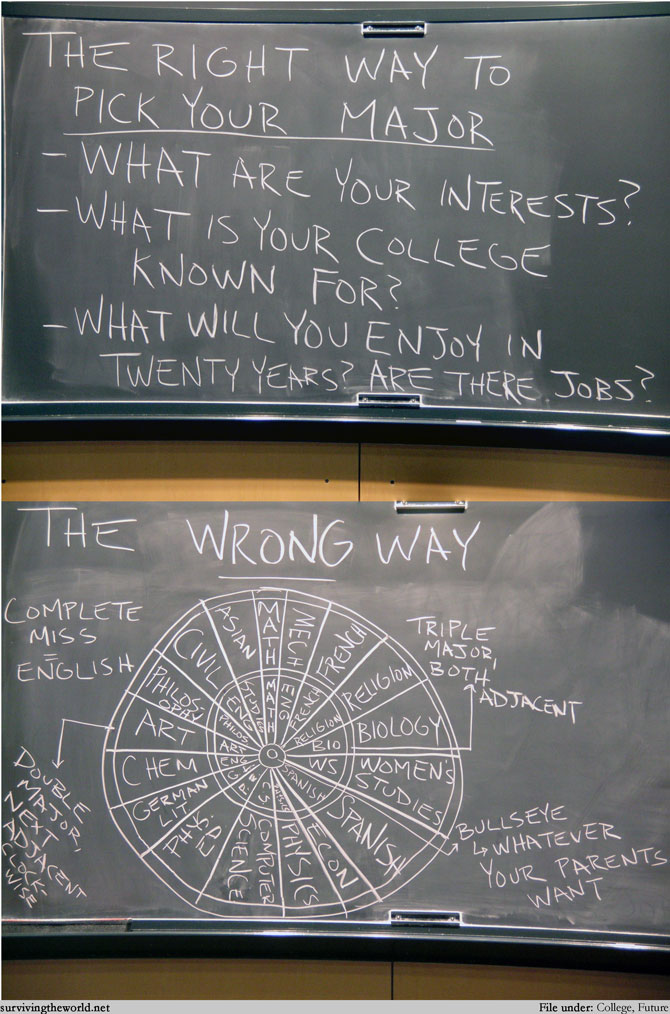 THE RIGHT WAY TO
PICK YOUR MAJOR
- WHAT ARE YOUR INTERESTS?
- WHAT IS YOUR COLLEGE
KNOWN FOR?
- WHAT WILL YOU ENJOY IN
TWENTY YEARS? ARE THERE JOBS?
THE WRONG WAY
COMPLETE
MISS
=
ENGLISH
TRIPLE
MAJOR,
BOTH
ADJACENT
DOUBLE
MAJOR,
NEXT
ADJACENT
CLOCKWISE
BULLSEYE
↳ WHATEVER
YOUR PARENTS
WANT
MATH
MECH ENG
FRENCH
RELIGION
BIOLOGY
WOMEN'S
STUDIES
SPANISH
ECON
PHYSICS
COMPUTER
SCIENCE
PHYS. ED
GERMAN
LIT
CHEM
ART
PHILOS-
OPHY
CIVIL ENG
ASIAN
MATH
FRENCH
RELIGION
BIO
WS
SPANISH
CS
ART
PHILOS
survivingtheworld.net
File under: College, Future